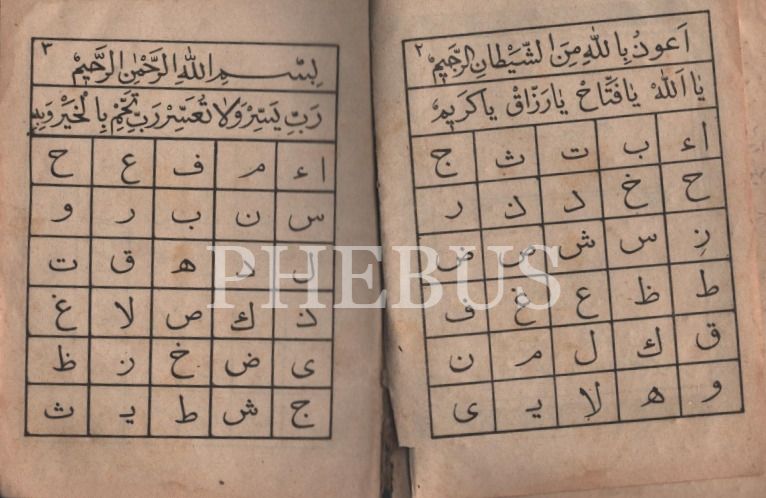 ٢
اَعوذُ بِاللهِ مِنَ الشَّيْطَانِ الرَّجِيمِ
يَا اَللهُ يَافَتَّاحُ يَارَزَّاقُ يَاكَرِيمُ
اء ب ت ث ج
ح خ د ذ ر
ز س ش ص ض
ط ظ ع غ ف
ق ك ل م ن
و ه لا يـ ى
٣
بِسْمِ اللهِ الرَّحْمٰنِ الرَّحِيمِ
رَبِّ يَسِّرْ وَلَا تُعَسِّرْ رَبِّ تَمِّمْ بِالْخَيْرِ وَبِهِ
اء م ف ع ح
س ن ب ر و
ل د ه ق ت
ذ ك ص لا غ
ى ض خ ز ظ
ج ش ط يـ ث
PHEBUS